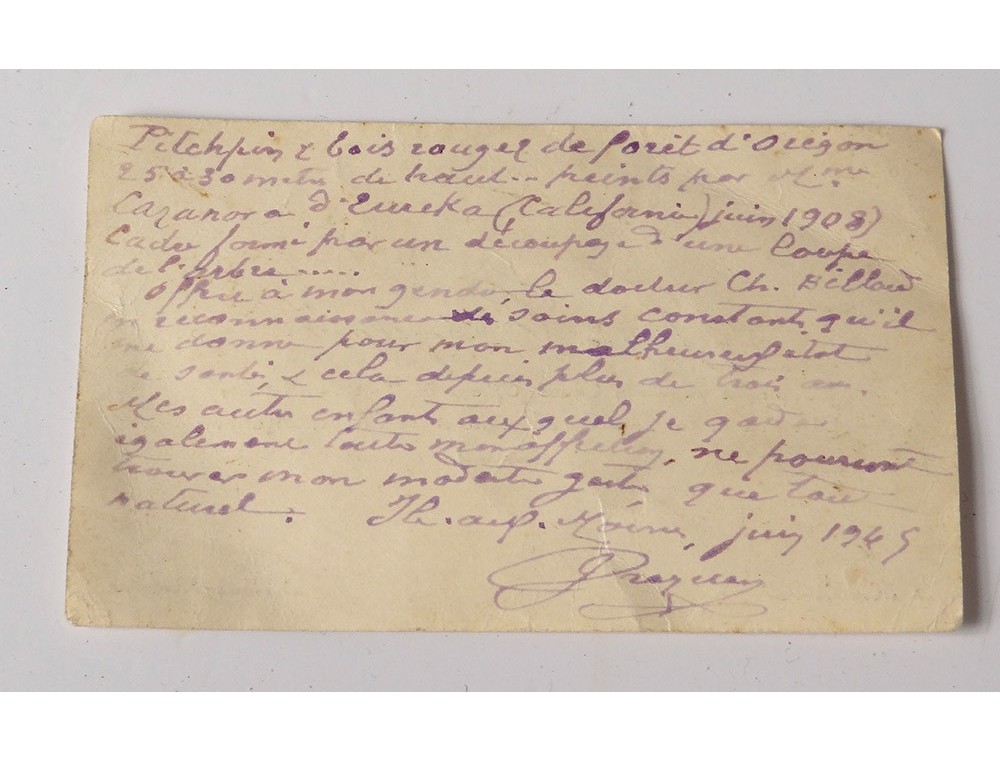 Pitchpin & bois rouges de forêt d'Orégon
25 à 30 mètres de haut... peints par Mme
Cazanova d'Eureka (Californie) juin 1908)
Cadre formé par un découpage d'une coupe
de l'arbre.....
Offert à mon gendre, le docteur Ch. Billaud
en reconnaissance des soins constants qu'il
me donne pour mon malheureux état
de santé, & cela depuis plus de trois ans.
Mes autres enfants auxquel je garde
également toute mon affection, ne pourront
trouver mon modeste geste que tout
naturel. Ile-aux-Moines, juin 1945